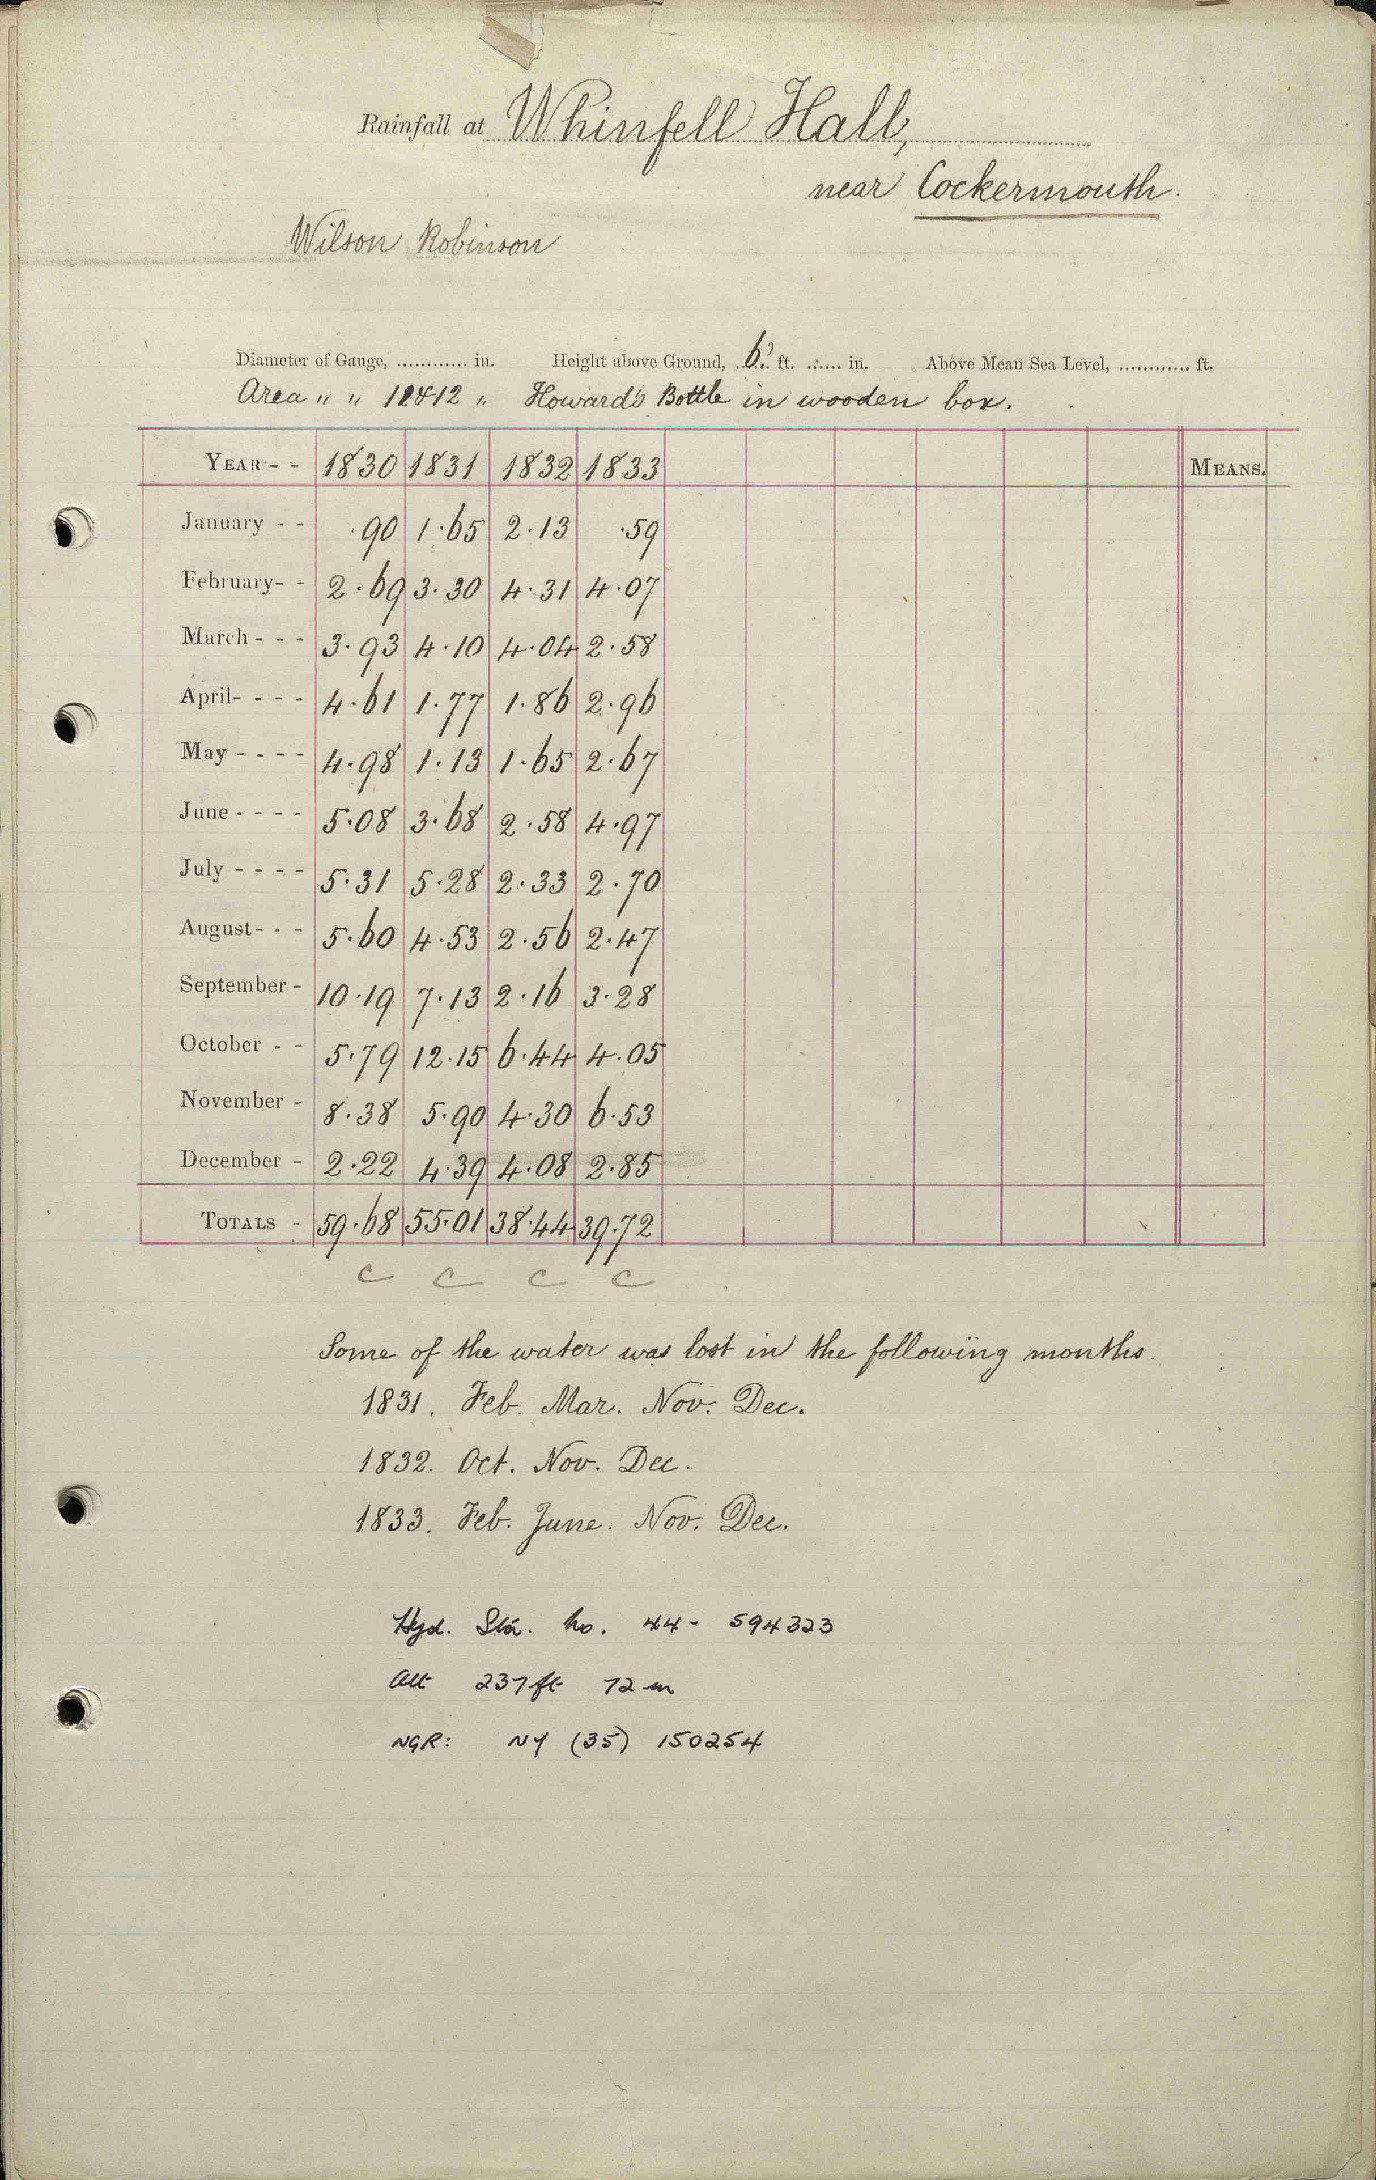 Rainfall at Whinfell Hall,
near Cockermouth.
Wilson Robinson
Diameter of Gauge, ............ in. Height above Ground, 6? ft. ...... in. Above Mean Sea Level, ............ ft.
Area " " 12 & 12 " Howard's Bottle in wooden box.
YEAR - - 1830 1831 1832 1833 MEANS.
January - - .90 1.65 2.13 .59
February - - 2.69 3.30 4.31 4.07
March - - - 3.93 4.10 4.04 2.58
April - - - - 4.61 1.77 1.86 2.96
May - - - - 4.98 1.13 1.65 2.67
June - - - - 5.08 3.68 2.58 4.97
July - - - - 5.31 5.28 2.33 2.70
August - - - 5.60 4.53 2.56 2.47
September - 10.19 7.13 2.16 3.28
October - - 5.79 12.15 6.44 4.05
November - 8.38 5.90 4.30 6.53
December - 2.22 4.39 4.08 2.85
TOTALS - 59.68 55.01 38.44 39.72
C C C C
Some of the water was lost in the following months.
1831. Feb. Mar. Nov. Dec.
1832. Oct. Nov. Dec.
1833. Feb. June. Nov. Dec.
Hyd. Sta. No. 44 - 594323
Alt 237 ft 72 m
NGR: NY (35) 150254